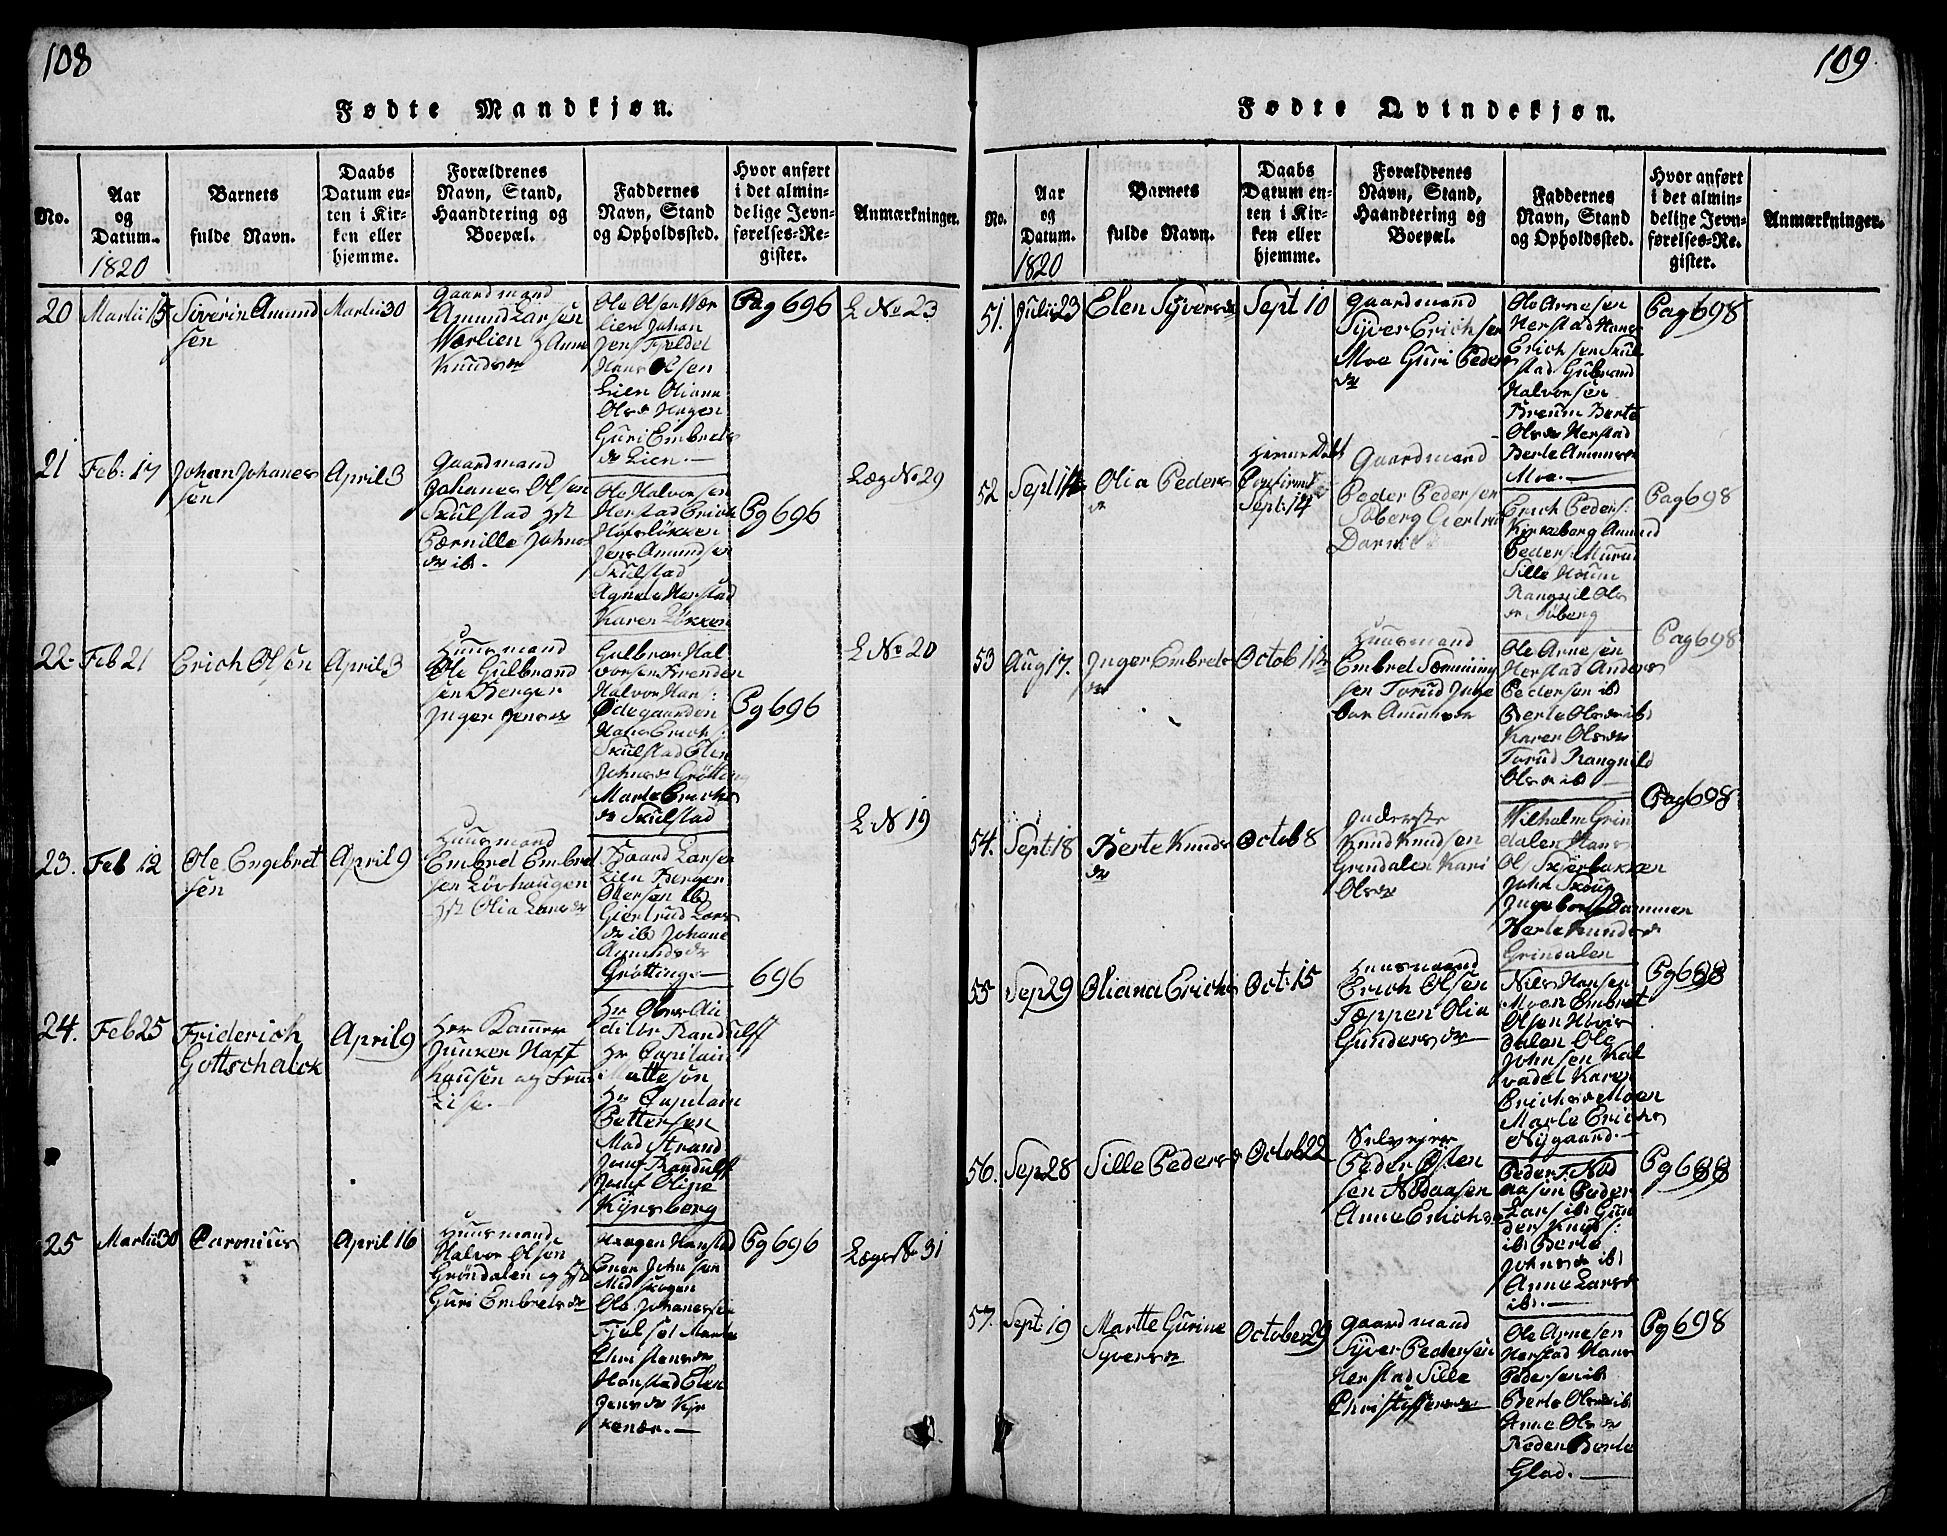 108
Fødte Mandkjøn.
No.
Aar
og
Datum.
1820
Barnets
fulde Navn.
Daabs
Datum en-
ten i Kir-
ken eller
hjemme.
Forældrenes
Navn, Stand,
Haandtering og
Boepæl.
Faddernes
Navn, Stand
og Opholdssted.
Hvor anført
i det almin-
delige Jevn-
førelses-Re-
gister.
Anmærkninger.
20
Martii 15
Siverin Amund
sen
Martii 30
Gaardmand
Amund Larsen
Wærlien
Knudsdr
Ole Olsen Wær
lien Johan
Jens Fjeldet
Hans Olsen
Lien Oliana
Olsdr Hagen
Guri Embrets
dr Lien.
Pag 696
L No 23
21
Feb: 17
Johan Johanes
sen
April 3
Gaardmand
Johanes Olsen
Skulstad Hst
Pernille Johns
dr ib.
Ole Halvorsen
Herstad Erich
Hofsløkken
Jens Amundsen
Skulstad
Agnete Herstad
Karen Løkken
Pg 696
Læg No 29
22
Feb 21
Erich Olsen
April 3
Huusmand
Ole Gulbrand
sen Berger
Inger Jensdr
Gulbran Hal
vorsen Brenden
Halvor Han:
Ødegaarden
Hans Erich:
Skulstad Elen
Johnsdr Grøtting
Marte Erichs
dr Skulstad
Pg 696
L No 20
23.
Feb 12
Ole Engebret
sen
April 9
Huusmand
Embret Embret
sen Løvhaugen
Hst Olia Larsdr
Baard Larsen
Lien Berger
Olersen ib
Giertrud Lars
dr ib Johane
Amundsdr
Grøttinge
696
L N 19
24.
Feb 25
Friderich
Gottschalck
April 9
Her Kammer
Junker Haff
hausen og Frue
Lise.
Hr Ober Au
ditør Randulff
Hr Capitain
Mattesøn
Hr Capitain
Pettersen
Mad Strand
Jomf Randulff
Jomf Oline
Kynsberg
25
Martii 30
Caronius
April 16
Huusmand
Halvor Olsen
Grøndalen og Hst
Guri Embretsdr
Haagen Hanstad
Ener Johnsen
Midskogen
Ole Johanessen
Fjelset Marte
Christensdr
Hanstad Elen
Jensdr Kir
kenær.
Pg 696
Læg No 31
109
Fødte Qvindekjøn.
No.
Aar
og
Datum.
1820
Barnets
fulde Navn.
Daabs
Datum en-
ten i Kir-
ken eller
hjemme.
Forældrenes
Navn, Stand,
Haandtering og
Boepæl.
Faddernes
Navn, Stand
og Opholdssted.
Hvor anført
i det almin-
delige Jevn-
førelses-Re-
gister.
Anmærkninger.
51.
Julii 23
Elen Syversdr
Sept 10
Gaardmand
Syver Erichsen
Moe Guri Peders
dr
Ole Arnesen
Herstad Hans
Erichsen Skul
stad Gulbrand
Halvorsen
Breum Berte
Olsdr Herstad
Berte Amunsdr
Moe.
Pag 698
52
Sept 14
Olia Peders
dr
Hieme Døbt
Confirmd
Sept: 14
Gaardmand
Peder Pedersen
Soberg Giertrud
Erich Peders:
Kirkeberg Amund
Peders: Murud
Sille Houm
Rangnil Ols
dr Soberg
Pag 698
53
Aug 17.
Inger Embrets
dr
Octob 1
Huusmand
Embret Sæmming
sen Torud Inge
bor Amunsdr
Ole Arnesen
Herstad Anders
Pedersen ib
Berte Olsdr ib
Karen Olsdr
Torud Rangnild
Olsdr ib
Pag 698
54.
Sept: 18
Berte Knuds
dr
Octob 8
Inderste
Knud Knudsen
Grindalen Kari
Olsdr
Wilhalm Grin
dalen Hans
Ol Skjerbakken
John Skoug
Ingeborg Dammen
Berte Knudsdr
Grindalen
Pag 698
55
Sep 29
Oliana Erichs
Oct: 15
Huusmand
Erich Olsen
Tæppen Olia
Gundersdr
Nils Hansen
Moen Embret
Olsen Hvis
dalen Ole
Johnsen Kal
vadel Karen
Erichsdr Moen
Marte Erichs
Nygaard.
Pg 688
56.
Sep 28
Sille Pedersdr
Octob 22
Selveier
Peder Østen
sen Nødaasen
Anne Erichsdr
Peder T. Nød
aasen Peder
Lars ib Gun
der Knud:
ib Berte
Johnsdr ib
Anne Larsdr
ib.
Pg 688
57.
Sept: 19
Martte Gurine
Syversdr
October 29
Gaardmand
Syver Pedersen
Herstad Sille
Christoffersdr
Ole Arnesen
Herstad Hans
Pedersen ib
Berte Olsdr ib
Anne Olsdr
Røden Berte
Glad.
Pg 698